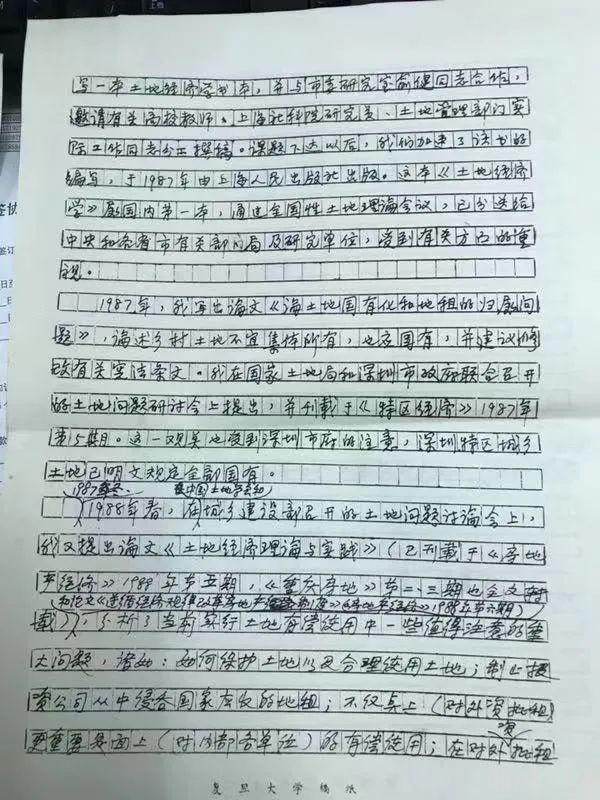 写一本土地经济学书本，并与市委研究室俞健同志合作，
邀请有关高校教师、上海社科院研究员、土地管理部门实
际工作同志分工撰稿。课题下达以后，我们加速了该书的
编写，于1987年由上海人民出版社出版。这本《土地经济
学》属国内第一本，通过全国性土地理论会议，已分送给
中央和各省市有关部门局及研究单位，受到有关方面的重
视。
1987年，我写出论文《论土地国有化和地租的归属问
题》，论述乡村土地不宜集体所有，也应国有，并建议修
改有关宪法条文。我在国家土地局和深圳市政府联合召开
的土地问题研讨会上提出，并刊载于《特区经济》1987年
第5期。这一观点也受到深圳市府的注意，深圳特区城乡
土地已明文规定全部国有。
1987年冬、在中国土地学会和
1988年春，城乡建设部召开的土地问题讨论会上，
我又提出论文《土地经济理论与实践》（已刊载于《房地
产经济》1988年第五期，《重庆房地》第二、三期也全文转
和论文《遵循经济规律改革房地产》《房地产经济》1988年第期）
载），分析了当前实行土地有偿使用中一些值得注意的重
大问题，诸如：如何保护土地以及合理使用土地；制止投
资公司从中侵吞国家应收的地租；不仅点上（对外资批租）
资
更重要是面上（对内部各单位）的有偿使用；在对外批租
复旦大学稿纸